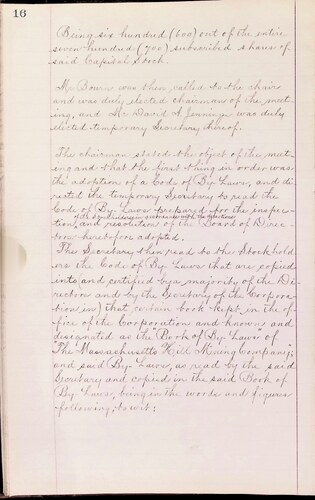 16
Being six hundred (600) out of the entire
seven hundred (700) subscribed shares of
said Capital Stock.
Mr Bowen was then called to the chair
and was duly elected chairman of the meet-
ing, and Mr David A Jennings was duly
elected temporary Secretary thereof.
The chairman stated the object of the meet-
ing and that the first thing in order was
the adoption of a Code of By Laws, and di-
rected the temporary Secretary to read the
Code of By Laws prepared for the inspec-
in accordance with the
tion and resolution of the Board of Direc-
tors heretofore adopted.
The Secretary then read to the Stockhold
ers the Code of By Laws that are copied
into (and certified by a majority of the Di-
rectors and by the Secretary of the Corpora-
tion in) that certain book kept in the of-
fice of the Corporation and known and
designated as the Book of By Laws of
"The Massachusetts Hill Mining Company",
and said By Laws, as read by the said
Secretary and copied in the said Book of
By Laws, being in the words and figures
following, to wit: